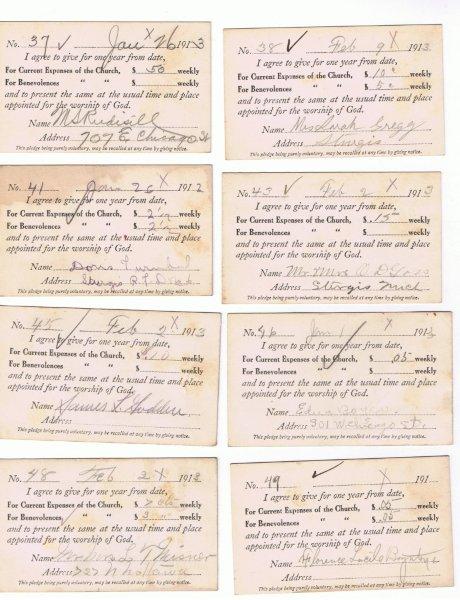 No. 37 ✓ Jan X 26 1913
I agree to give for one year from date,
For Current Expenses of the Church, $ .50 weekly
For Benevolences " " $ weekly
and to present the same at the usual time and place
appointed for the worship of God.
Name M S Rudisill
Address 707 E Chicago St
This pledge being purely voluntary, may be recalled at any time by giving notice.
No. 38 ✓ Feb 9 X 1913
I agree to give for one year from date,
For Current Expenses of the Church, $ 10 c weekly
For Benevolences " " $ 5 c weekly
and to present the same at the usual time and place
appointed for the worship of God.
Name Mrs Sarah Gregg
Address Sturgis
This pledge being purely voluntary, may be recalled at any time by giving notice.
No. 41 Jan 26 X 1912
I agree to give for one year from date,
For Current Expenses of the Church, $ 2 1/2 weekly
For Benevolences " " $ 2 1/2 weekly
and to present the same at the usual time and place
appointed for the worship of God.
Name Doris
Address Sturgis
This pledge being purely voluntary, may be recalled at any time by giving notice.
No. 43 ✓ Feb 2 X 1913
I agree to give for one year from date,
For Current Expenses of the Church, $ 15 weekly
For Benevolences " " $ weekly
and to present the same at the usual time and place
appointed for the worship of God.
Name Mr. Mrs
Address Sturgis Mich
This pledge being purely voluntary, may be recalled at any time by giving notice.
No. 45 Feb 2 X 1913
I agree to give for one year from date,
For Current Expenses of the Church, $ 10 weekly
For Benevolences " " $ weekly
and to present the same at the usual time and place
appointed for the worship of God.
Name James
Address
This pledge being purely voluntary, may be recalled at any time by giving notice.
No. 46 Jan X 191
I agree to give for one year from date,
For Current Expenses of the Church, $ .05 weekly
For Benevolences " " $ weekly
and to present the same at the usual time and place
appointed for the worship of God.
Name
Address 301 W Chicago St.
This pledge being purely voluntary, may be recalled at any time by giving notice.
No. 48 Feb 2 X 1913
I agree to give for one year from date,
For Current Expenses of the Church, $ weekly
For Benevolences " " $ weekly
and to present the same at the usual time and place
appointed for the worship of God.
Name
Address
This pledge being purely voluntary, may be recalled at any time by giving notice.
No. 49 ✓ X 191
I agree to give for one year from date,
For Current Expenses of the Church, $ .05 weekly
For Benevolences " " $ .05 weekly
and to present the same at the usual time and place
appointed for the worship of God.
Name Florence
Address
This pledge being purely voluntary, may be recalled at any time by giving notice.